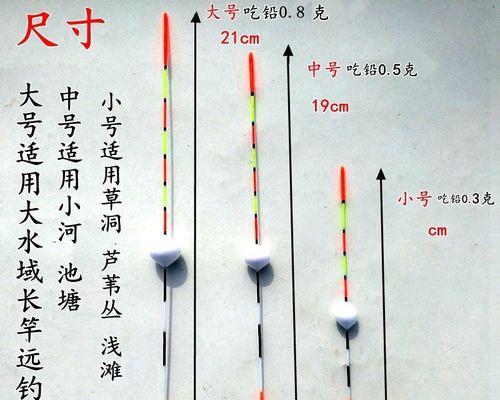 尺寸
大号吃铅0.8 克
21cm
中号吃铅0.5克
19cm
小号吃铅0.3克
cm
大号适用大水域长竿远钓
中号适用小河 池塘
小号适用草洞 芦苇丛 浅滩